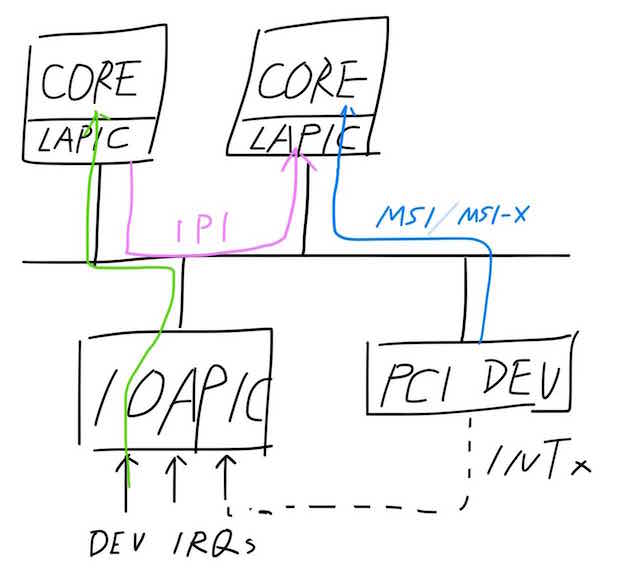 CORE
CORE
LAPIC
LAPIC
IPI
MSI/MSI-X
IOAPIC
PCI DEV
INTx
DEV IRQs